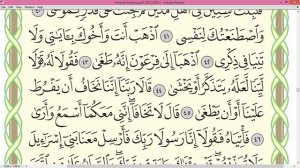 فَلَبِثْتَ سِنِينَ فِىٓ أَهْلِ مَدْيَنَ ثُمَّ جِئْتَ عَلَىٰ قَدَرٍ يَٰمُوسَىٰ
وَٱصْطَنَعْتُكَ لِنَفْسِى ٤١ ٱذْهَبْ أَنتَ وَأَخُوكَ بِـَٔايَٰتِى وَلَا
تَنِيَا فِى ذِكْرِى ٤٢ ٱذْهَبَآ إِلَىٰ فِرْعَوْنَ إِنَّهُۥ طَغَىٰ ٤٣ فَقُولَا لَهُۥ قَوْلًا
لَّيِّنًا لَّعَلَّهُۥ يَتَذَكَّرُ أَوْ يَخْشَىٰ ٤٤ قَالَا رَبَّنَآ إِنَّنَا نَخَافُ أَن يَفْرُطَ
عَلَيْنَآ أَوْ أَن يَطْغَىٰ ٤٥ قَالَ لَا تَخَافَآ إِنَّنِى مَعَكُمَآ أَسْمَعُ وَأَرَىٰ
٤٦ فَأْتِيَاهُ فَقُولَآ إِنَّا رَسُولَا رَبِّكَ فَأَرْسِلْ مَعَنَا بَنِىٓ إِسْرَٰٓءِيلَ